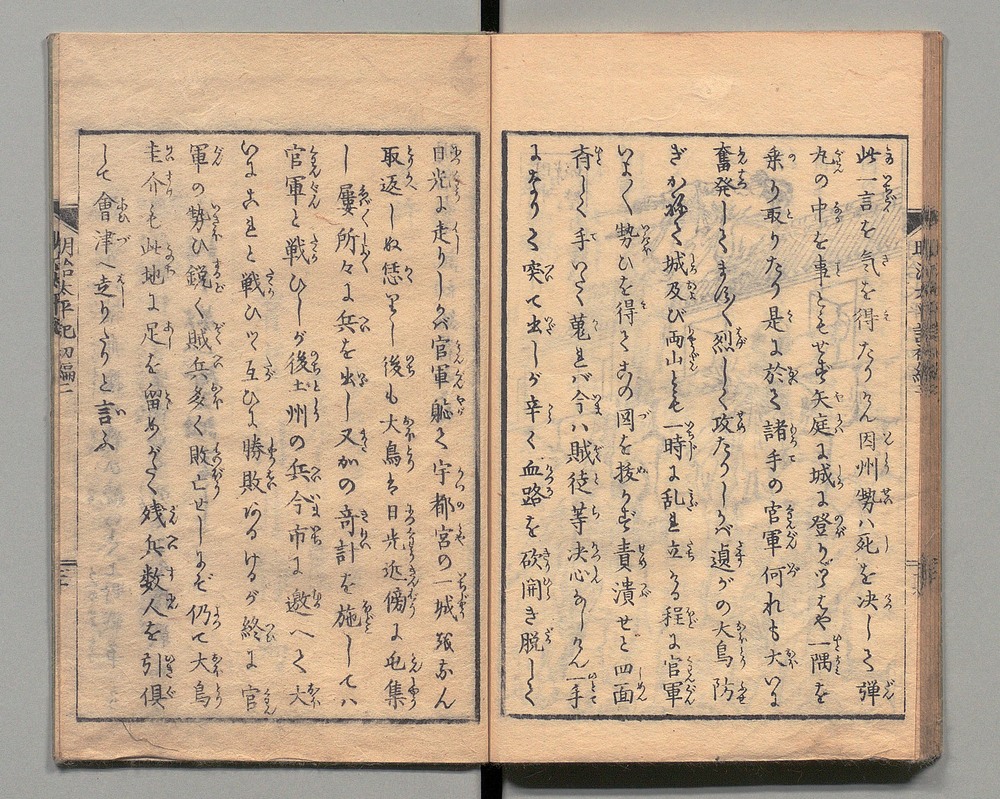 此一言を気を得たりけん因州勢ハ死を決して弾
丸の中を事ともせず矢庭に城に登りはや一隅を
乗り取たり是に於て諸手の官軍何れも大いに
奮発してまた烈しく攻たりしかバ遉がの大鳥防
ぎかねて城及び両山とも一時に乱れ立たる程に官軍
いよ〱勢ひを得てこの図を抜かさず責潰せと四面
斉しく手いたく蒐れバ今ハ賊徒等决心なしけん一手
になりて突て出しが辛く血路を砍開き脱して
日光に走りしかバ官軍躰て宇都宮の一城をなん
取返しぬ恁りし後も大鳥ハ日光近傍に屯集
し屢所々に兵を出し又かの奇計を施してハ
官軍と戦ひしが後土州の兵今市に邀へて大
いにこれと戦ひツヽ互ひに勝敗ありけるが終に官
軍の勢ひ鋭く賊兵多く敗亡せしにぞ仍て大鳥
圭介も此地に足を留めがたく残兵数人を引倶
して會津へ走りたりと言ふ
明治太平記 初編二